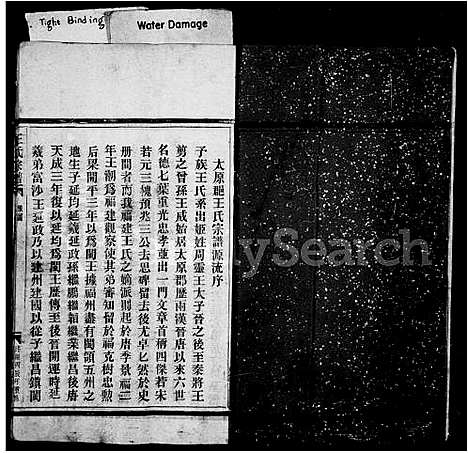 Tight Binding
Water Damage
太原郡王氏宗譜源流序
子族王氏系出姬姓周靈王大子晉之後至秦將王
翦之曾孫王威始居太原郡歷兩漢晉唐以來六世
名德七葉重光忠孝萃出一門文章首稱四傑若宋
若元三槐預兆三公去思碑留去後尤卓匕然於史
册間者而我福建王氏之嫡派則起於唐季景福二
年王潮爲福建觀察使其弟審知留於福克樹忠勲
后梁開平三年以爲閩王據福州盡有閩領五州之
地生子延均延羲延政孫繼鵬繼韜繼業繼昌後唐
天成三年復以延均爲閩王歷傳至後晉開運時延
羲弟富沙王延政乃以建州建國以從子繼昌鎮閩
MySearch